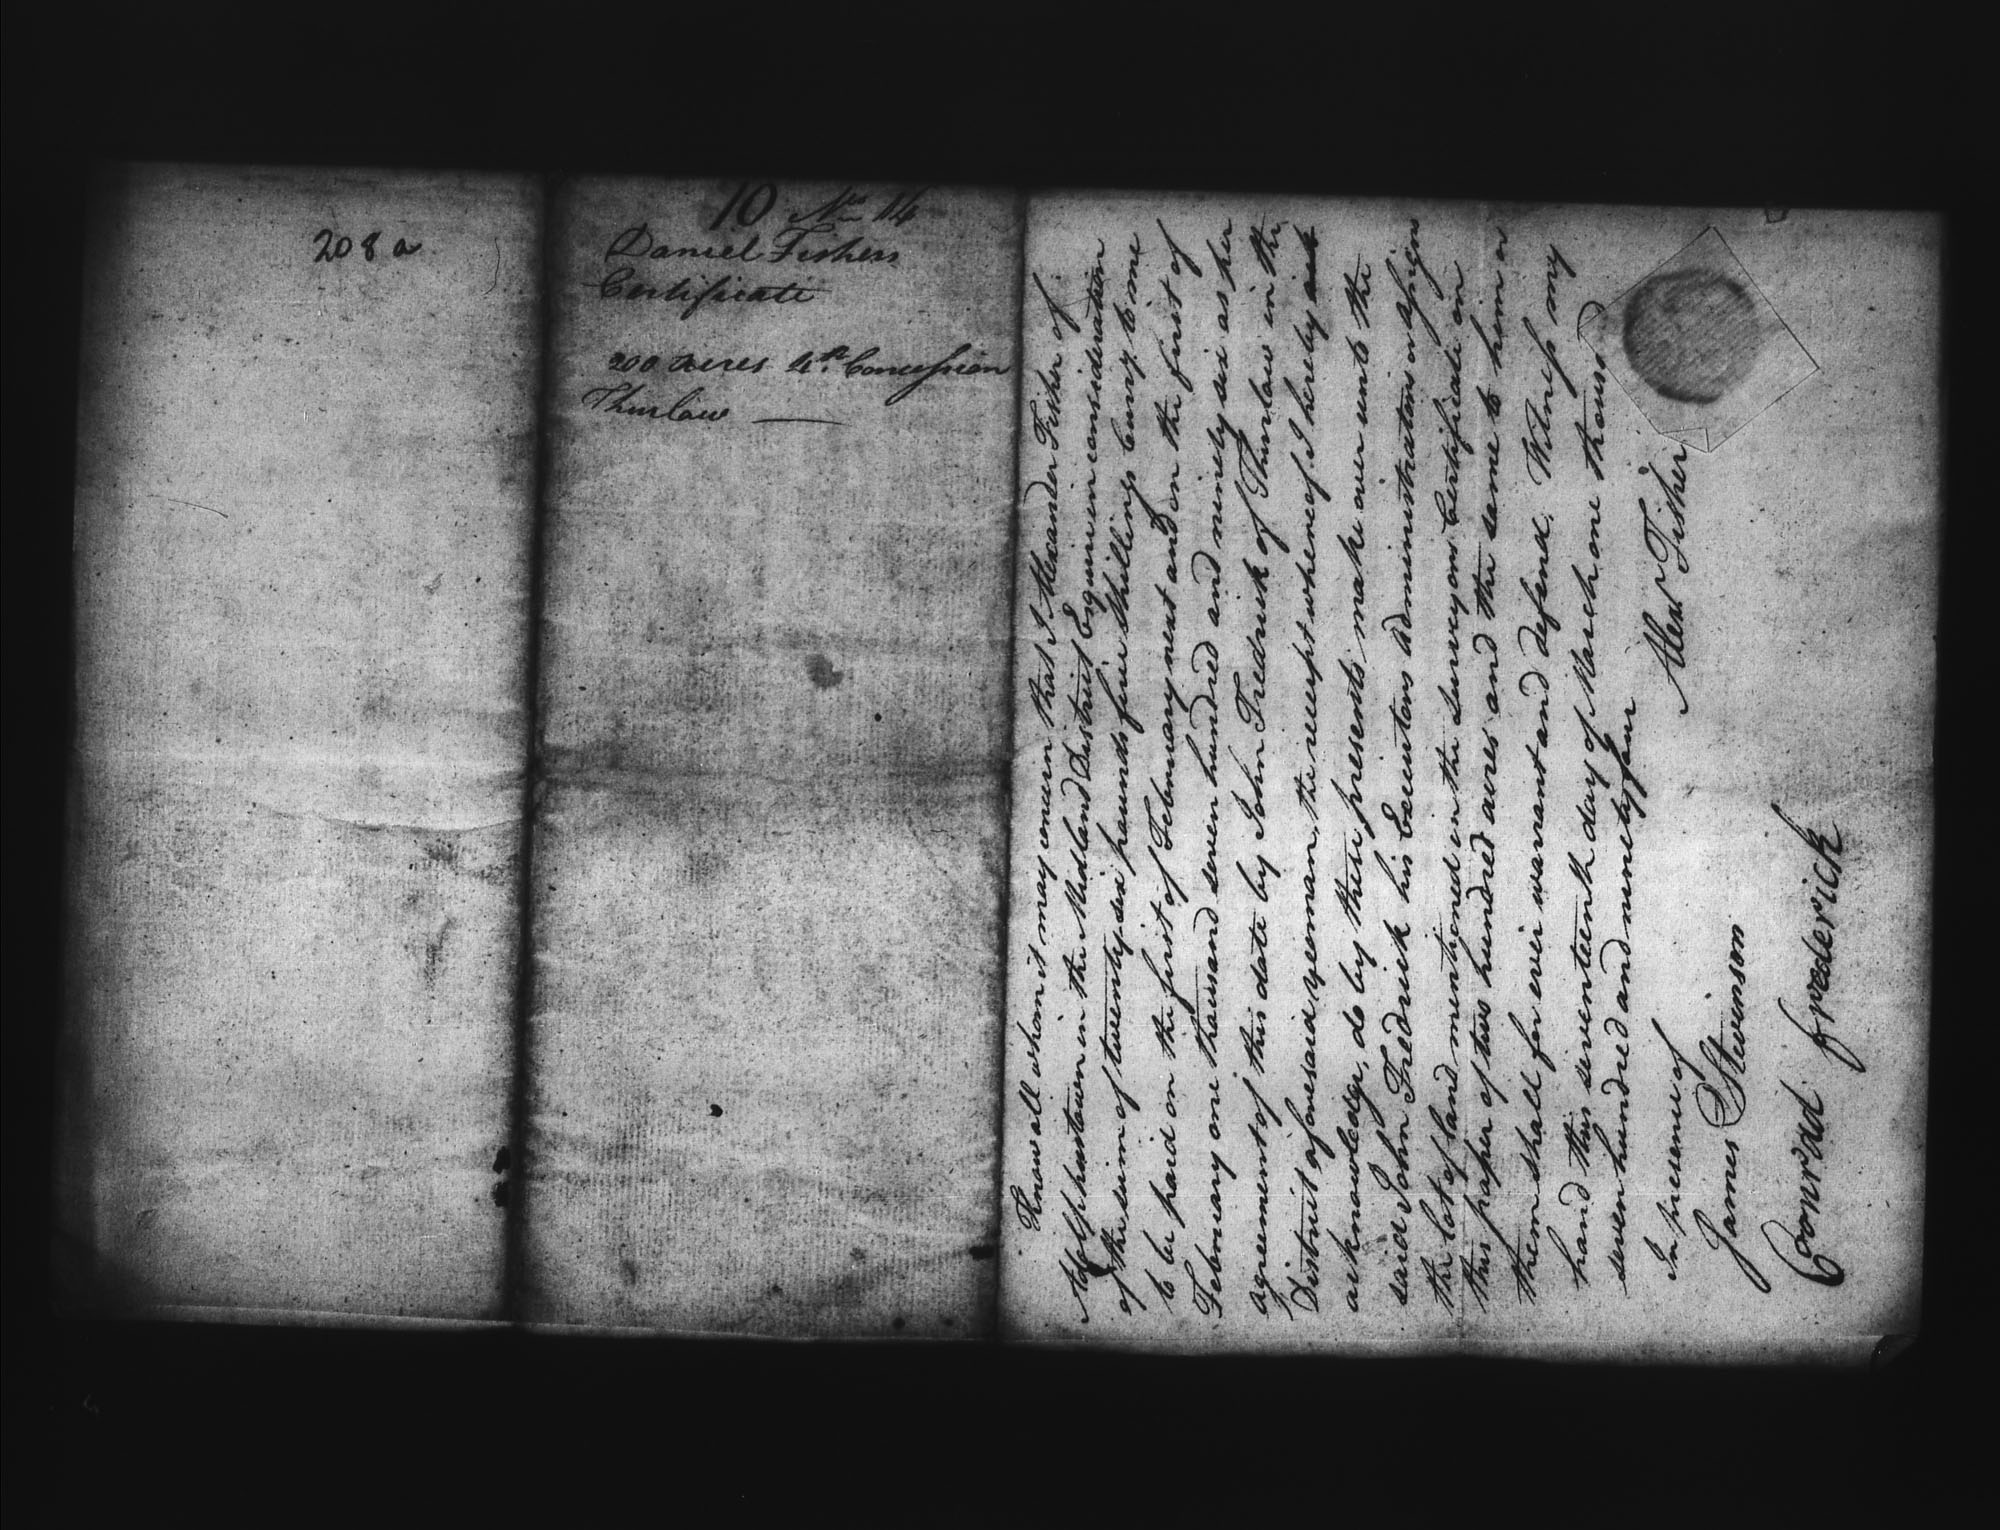 208 a
10 No 14
Daniel Fishers
Certificate
200 acres 4th Concession
Thurlow
Know all whom it may concern that I Alexander Fisher of
Adolphustown in the Midland District Esquire in consideration
of the sum of twenty six pounds five shillings Curry. to me
to be paid on the first of February next and on the first of
February one thousand seven hundred and ninety six as per
agreement of this date by John Fredrick of Thurlow in the
District aforesaid yeoman, the receipt whereof I hereby ack
acknowledge, do by these presents make over unto the
said John Fredrick his Executors administrators or assigns
the lot of land mentioned in the Surveyors Certificate on
this paper of two hundred acres and the same to him or
them shall for ever warrant and defend. Witness my
hand this seventeenth day of March one thousand
seven hundred and ninety four
Alexr Fisher
In presence of
James Stevenson
Conrad frederick